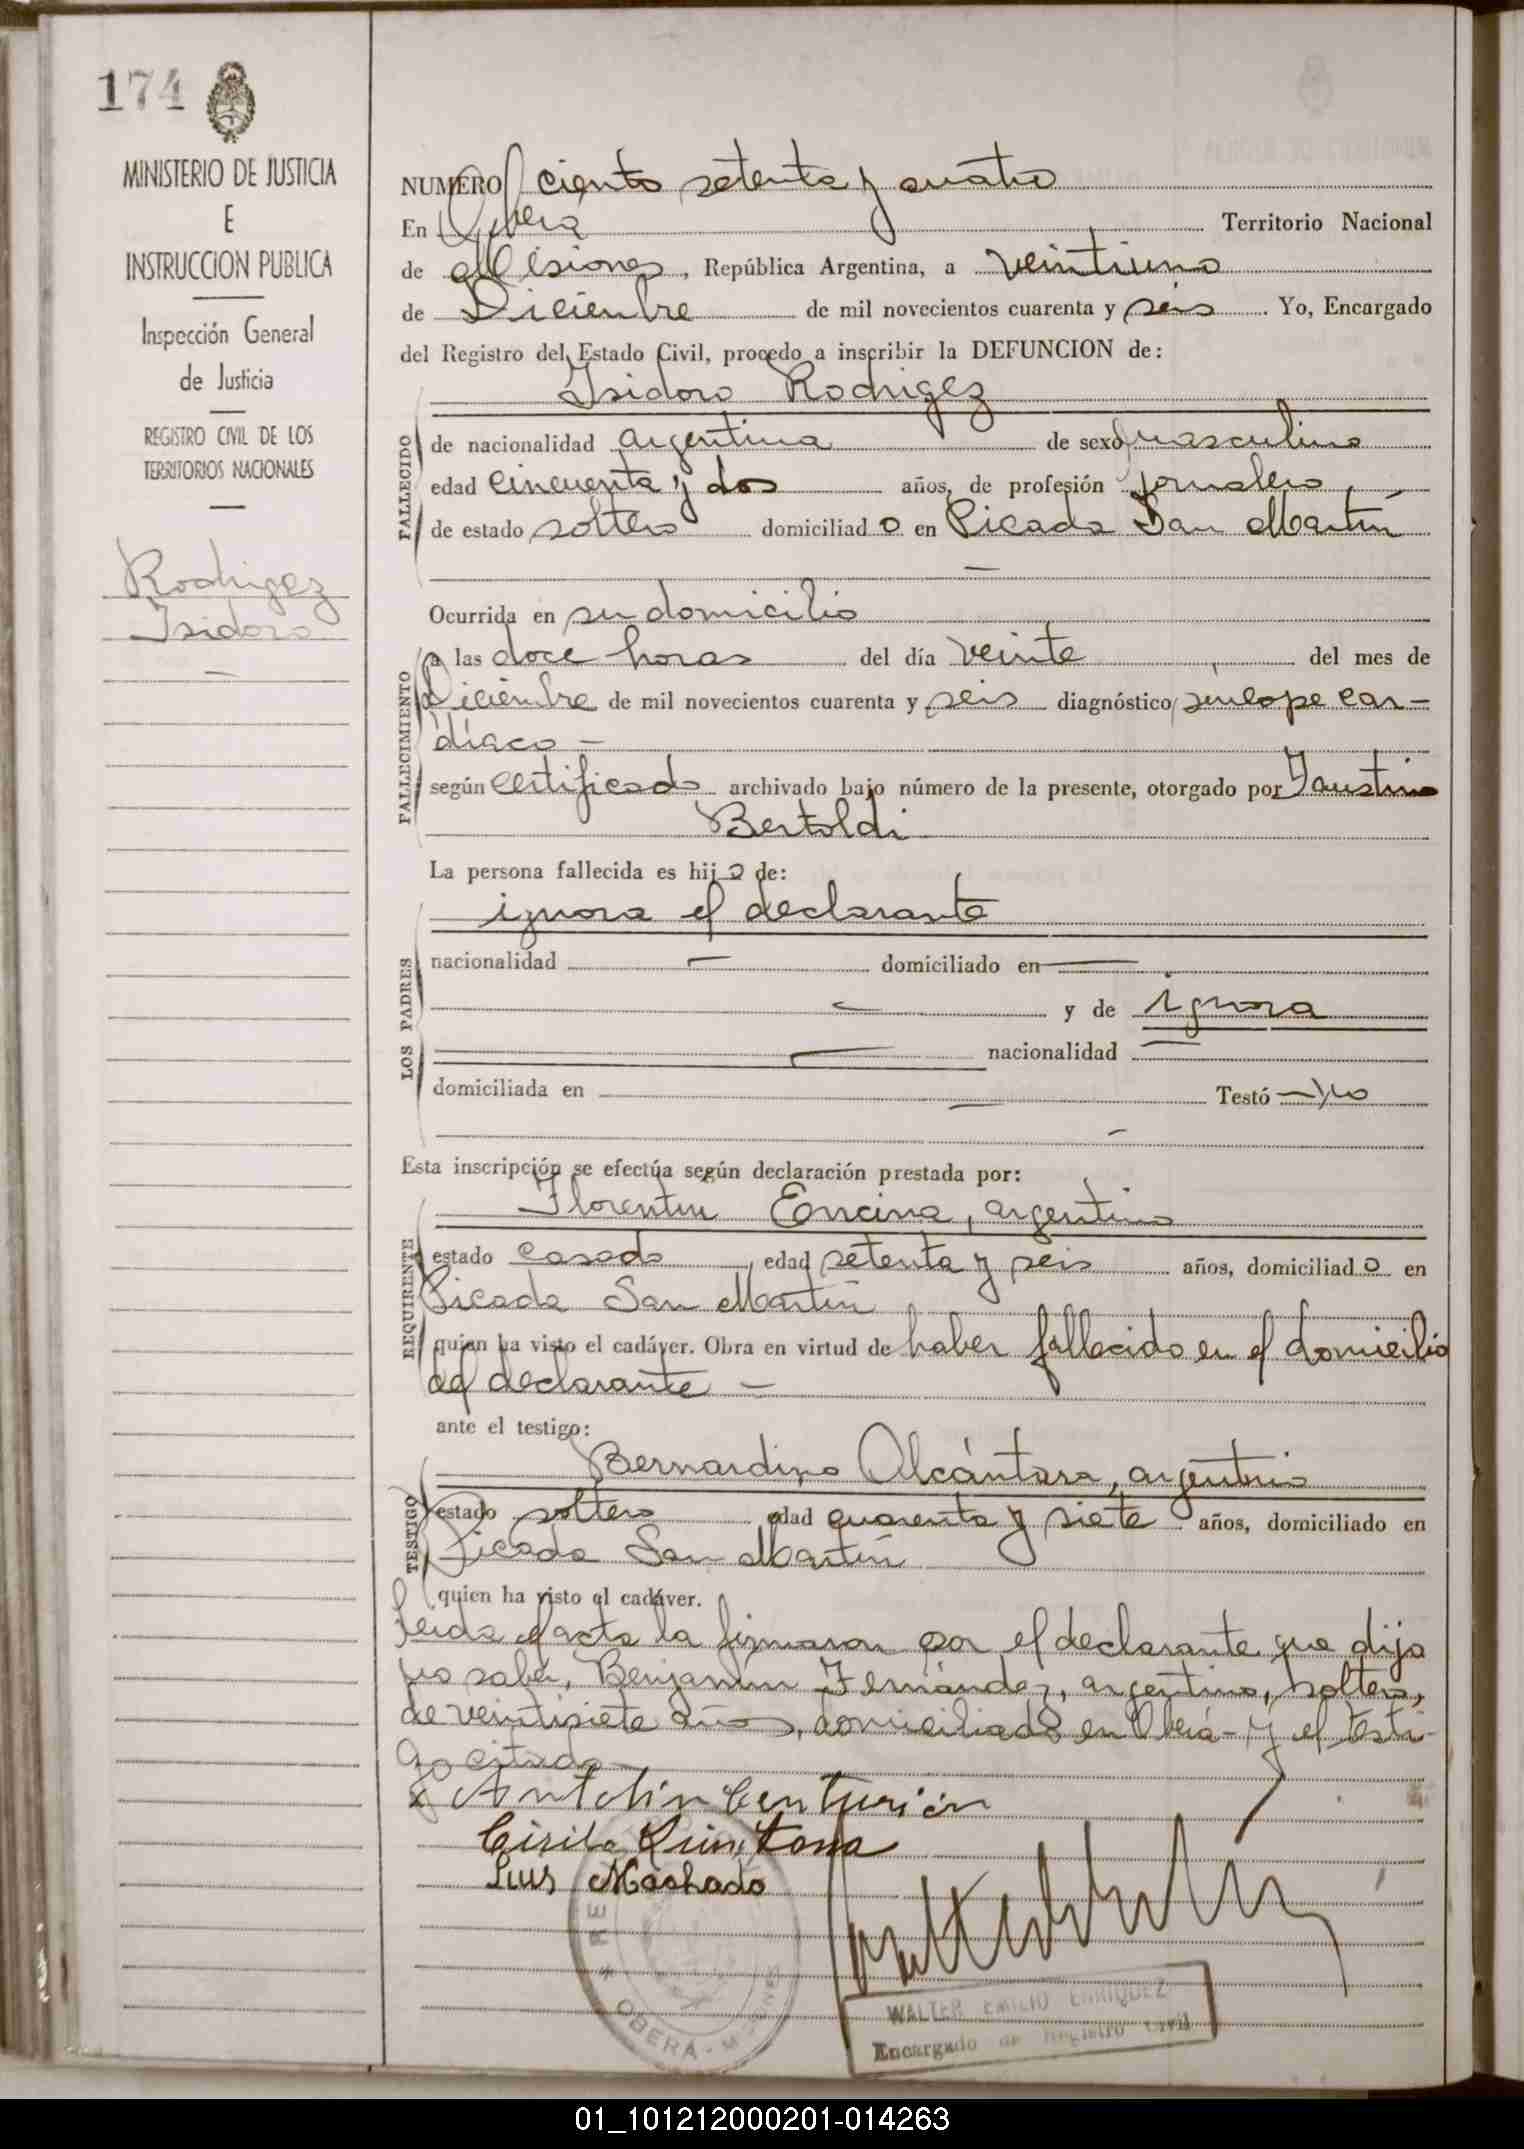 174
MINISTERIO DE JUSTICIA
E
INSTRUCCION PUBLICA
Inspección General
de Justicia
REGISTRO CIVIL DE LOS
TERRITORIOS NACIONALES
Rodrigez
Isidoro
NUMERO ciento setenta y cuatro
En Oberá Territorio Nacional
de Misiones, República Argentina, a veintiuno
de Diciembre de mil novecientos cuarenta y seis. Yo, Encargado
del Registro del Estado Civil, procedo a inscribir la DEFUNCION de:
Isidoro Rodrigez
FALLECIDO
de nacionalidad argentina de sexo masculino
edad cincuenta y dos años, de profesión jornalero,
de estado soltero domiciliado en Picada San Martín
Ocurrida en su domicilio
FALLECIMIENTO
a las doce horas del día veinte del mes de
Diciembre de mil novecientos cuarenta y seis diagnóstico síncope car-
díaco -
según certificado archivado bajo número de la presente, otorgado por Faustino
Bertoldi
La persona fallecida es hijo de:
ignora el declarante
LOS PADRES
nacionalidad — domiciliado en —
— y de ignora
— nacionalidad —
domiciliada en — Testó —
Esta inscripción se efectúa según declaración prestada por:
Florentin Encina, argentino
REQUIRENTE
estado casado, edad setenta y seis años, domiciliado en
Picada San Martín
quien ha visto el cadáver. Obra en virtud de haber fallecido en el domicilio
del declarante -
ante el testigo:
Bernardino Alcántara, argentino
TESTIGO
estado soltero edad cuarenta y siete años, domiciliado en
Picada San Martín
quien ha visto el cadáver.
Leida el acta la firmaron por el declarante que dijo
no saber, Benjamín Fernández, argentino, soltero,
de veintisiete años, domiciliado en Oberá - y el testi-
go citado
Antolín Centurión
Cirilo Quintana
Luis Machado
OBERÁ - MISIONES
WALTER EMILIO ENRIQUEZ
Encargado de Registro Civil
01_101212000201-014263